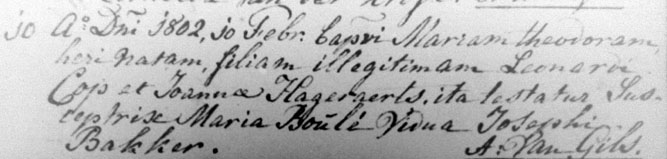 10 Aº: Dni 1802, 10 Febr. Bapsvi Mariam theodoram
heri natam, filiam illegitimam Leonardi
Cop et Joannæ Hageraerts, ita testatur Sus-
ceptrix Maria Boulé Vidua Josephi
Bakker. A: Van Gils.